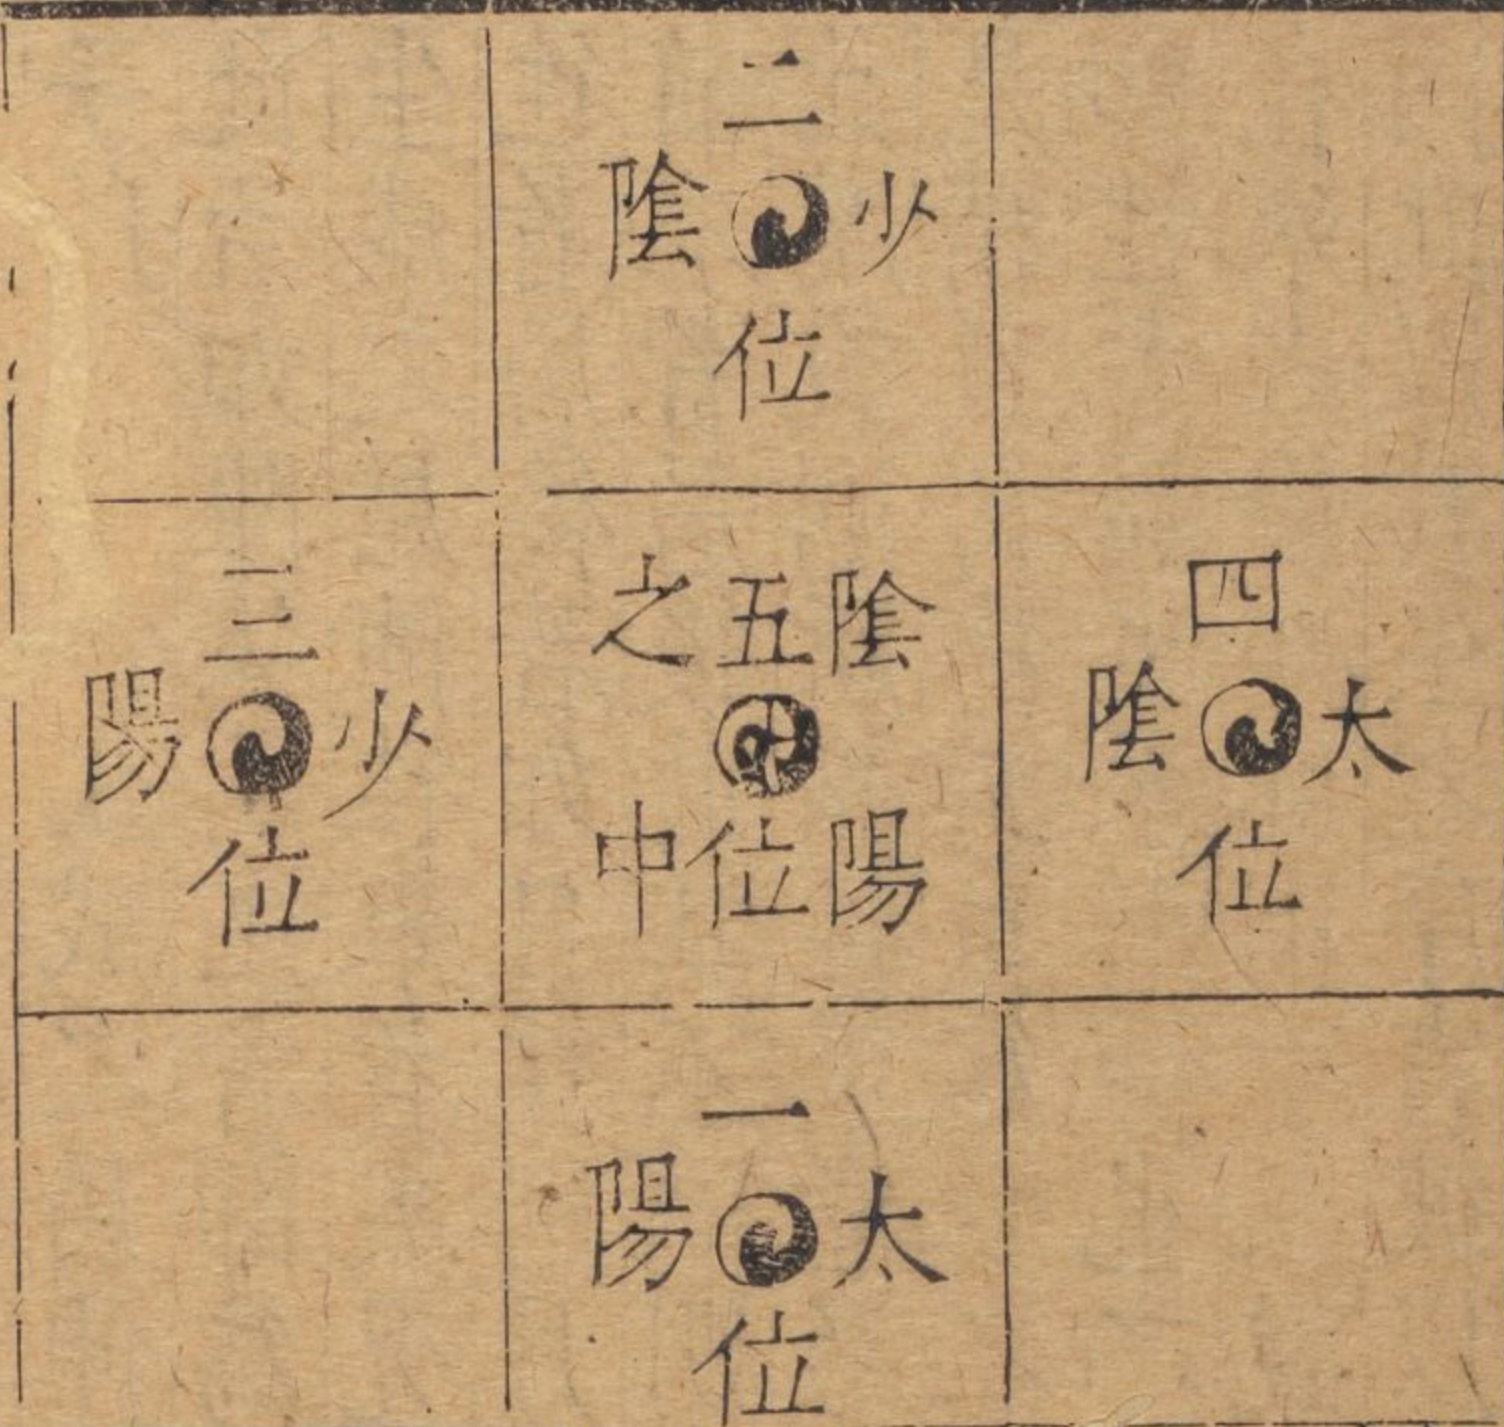 二
少隂
位
四
太隂
位
隂陽
五位
之中
三
少陽
位
一
太陽
位